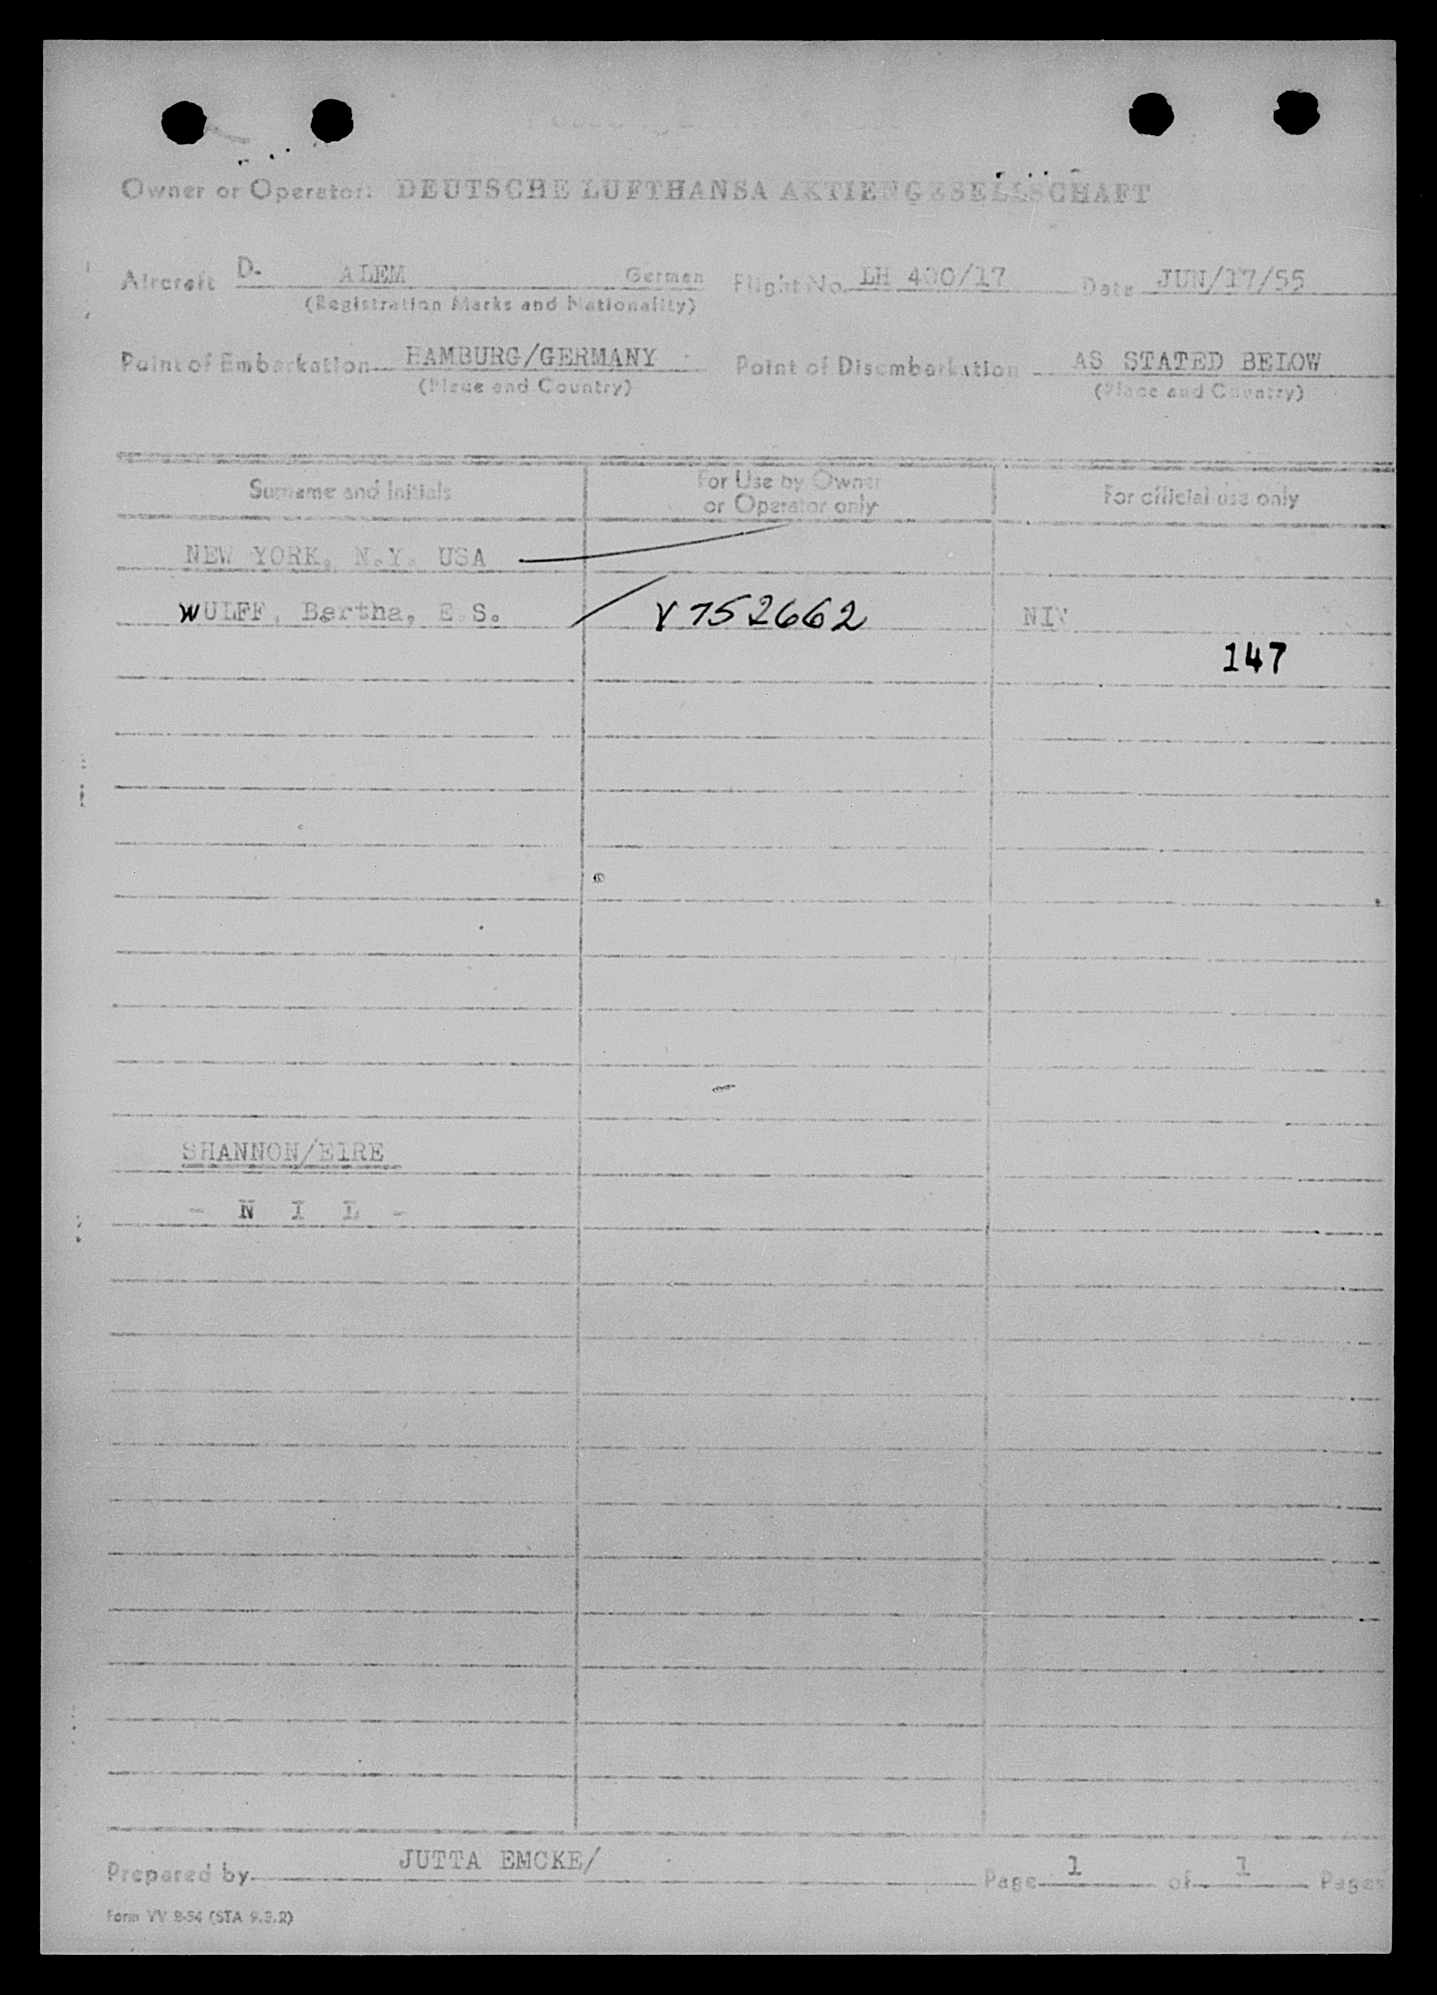 Owner or Operator: DEUTSCHE LUFTHANSA AKTIENGESELLSCHAFT
Aircraft D. ALEM German Flight No. LH 400/17 Date JUN/17/55
(Registration Marks and Nationality)
Point of Embarkation HAMBURG/GERMANY Point of Disembarkation AS STATED BELOW
(Place and Country) (Place and Country)
Surname and Initials For Use by Owner or Operator only For official use only
NEW YORK, N.Y. USA
WULFF, Bertha, E.S. V 752662 NIV
147
SHANNON/EIRE
- N I L -
Prepared by JUTTA EMCKE/ Page 1 of 1 Pages
Form VV 8-54 (STA 9.3.2)